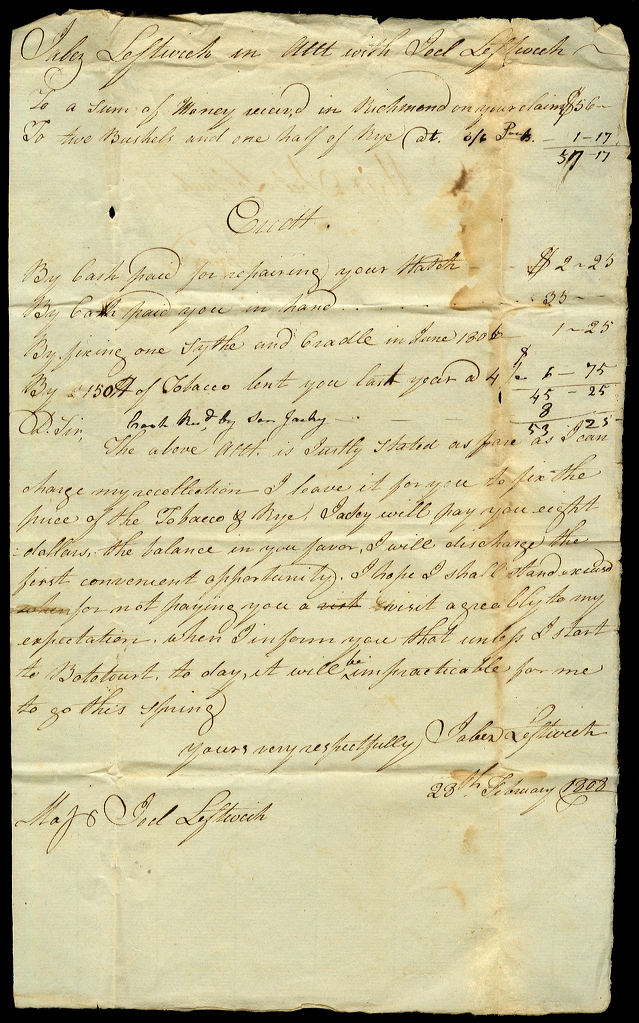 Jabez Leftwich in Acct with Joel Leftwich
To a Sum of Money receivd in Richmond on your claim $56 -
To two Bushels and one half of Rye at. 3/6 Pr B. 1 - 17
57 - 17
Credt.
By Cash paid for repairing your Watch $ 2 - 25
By Cash paid you in hand . . . . . 35 -
By fixing one Sythe and Cradle in June 1806 1 - 25
By 150 lb of Tobacco lent you last year a 4 1/2 $ 6 - 75
45 - 25
Cash Recd by Son Jacky - - 8
D. Sir, 53 25
The above Acct. is Justly Stated as fare as I can
charge my recollection I leave it for you to fix the
price of the Tobacco & Rye. Jackey will pay you eight
dollars, the balance in you favor, I will discharge the
first convenient opportunity. I hope I shall Stand excusd
when for not paying you a visit visit agreebly to my
expectation. when I inform you that unless I start
to Bototourt. to day, it will be impracticable for me
to go this spring
yours very respectfully Jabez Leftwich
23th February 1808
Majr Joel Leftwich